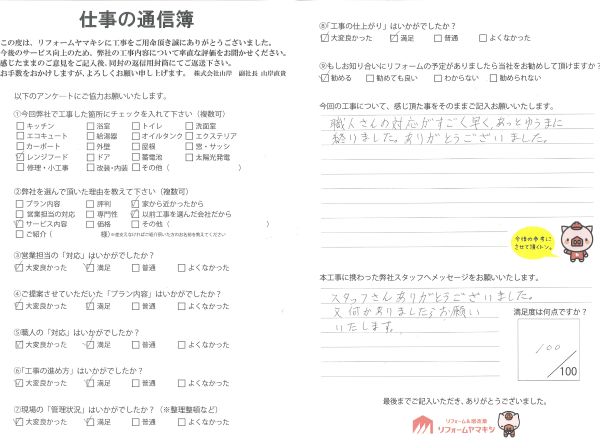 仕事の通信簿
この度は、リフォームヤマキシに工事をご用命頂き誠にありがとうございました。
今後のサービス向上のため、弊社の工事内容について率直な評価をお聞かせください。
感じたままのご意見をご記入後、同封の返信用封筒にてご返送下さい。
お手数をおかけしますが、よろしくお願い申し上げます。 株式会社山岸 副社長 山岸直貴
以下のアンケートにご協力お願いいたします。
①今回弊社で工事した箇所にチェックを入れて下さい（複数可）
□キッチン □浴室 □トイレ □洗面室
□エコキュート □給湯器 □オイルタンク □エクステリア
□カーポート □外壁 □屋根 □窓・サッシ
☑レンジフード □ドア □蓄電池 □太陽光発電
□修理・小工事 □改装・内装 □その他（ ）
②弊社を選んで頂いた理由を教えて下さい（複数可）
□プラン内容 □評判 ☑家から近かったから
□営業担当の対応 □専門性 ☑以前工事を選んだ会社だから
☑サービス内容 □価格 □その他（ ）
□ご紹介（ 様）※差支えなければご紹介頂いた方のお名前を教えてください
③営業担当の「対応」はいかがでしたか？
☑大変良かった ☑満足 □普通 □よくなかった
④ご提案させていただいた「プラン内容」はいかがでしたか？
☑大変良かった ☑満足 □普通 □よくなかった
⑤職人の「対応」はいかがでしたか？
☑大変良かった ☑満足 □普通 □よくなかった
⑥「工事の進め方」はいかがでしたか？
☑大変良かった ☑満足 □普通 □よくなかった
⑦現場の「管理状況」はいかがでしたか？（※整理整頓など）
☑大変良かった ☑満足 □普通 □よくなかった
⑧「工事の仕上がり」はいかがでしたか？
☑大変良かった ☑満足 □普通 □よくなかった
⑨もしお知り合いにリフォームの予定がありましたら当社をお勧めして頂けますか？
☑勧める □勧めても良い □わからない □勧められない
今回の工事について、感じ頂た事をそのままご記入お願いいたします。
職人さんの対応がすごく早く、あっとゆうまに
終りました。ありがとうございました。
今後の参考に
させて頂くトン。
本工事に携わった弊社スタッフへメッセージをお願いいたします。
スタッフさんありがとうございました。
又何かありましたらお願い
いたします。
満足度は何点ですか？
100
/100
最後までご記入いただき、ありがとうございました。
リフォーム&増改築
リフォームヤマキシ